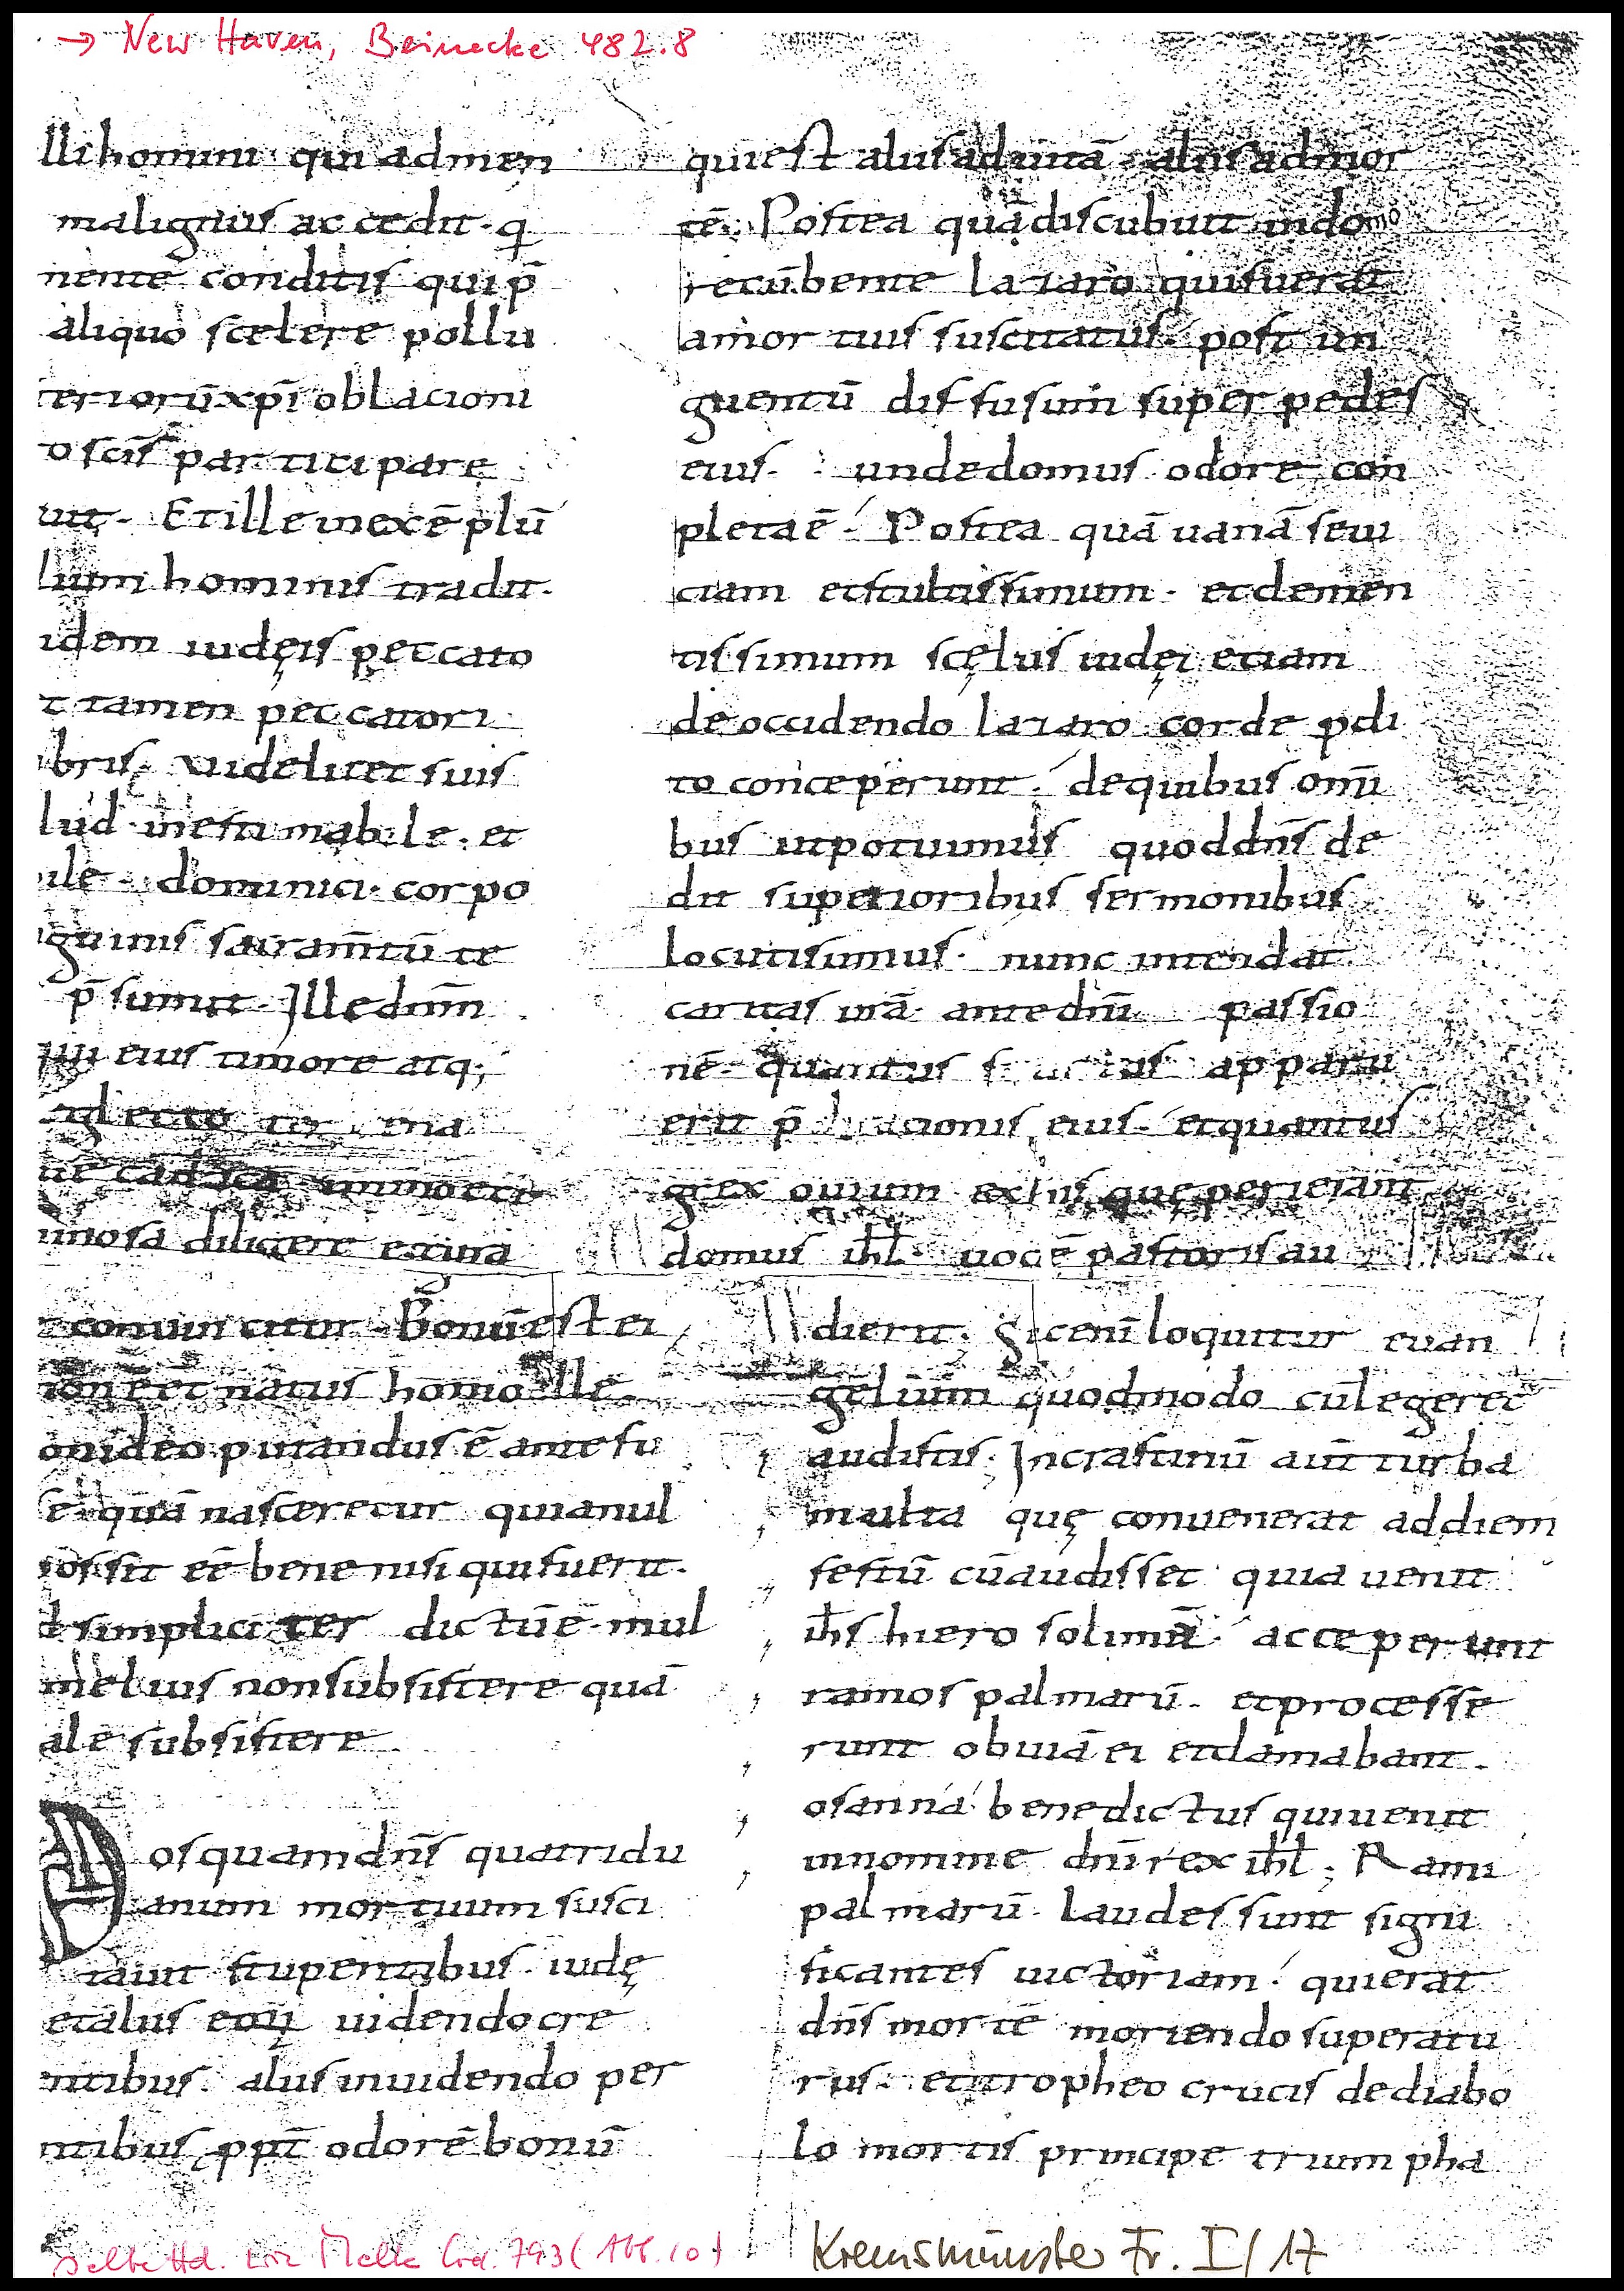 → New Haven, Beinecke 482.8
lli homini qui ad men
malignus accedit · q
nente conditis qui p̄
aliquo scelere pollu
teriorū xp̄i oblacioni
o scis̄ participare
uit · Et ille in exēplū
lium hominis tradit ·
idem iudęis peccato
t tamen peccatori
bris · videlicet suis
lud inestimabile · et
ile · dominici corpo
guinis sacram̄tū te
p̄sumit · Ille dnm̄
eius timore atq;
glecto
imosa diligere
conuincitur · Bonū est ei
natus homo ille ·
on ideo putandus ē ante fu
sē quā nasceretur quia nul
possit eē bene nisi qui fuerit ·
d simpliciter dictū ē · mul
melius non subsistere quā
ale subsistere
Posquam dn̄s quatridu
anum mortuum susci
tauit stupentibus iudę
et aliis eoꝝ uidendo cre
ntibus · aliis inuidendo per
ntibus ꝓpt̄ odorē bonū
qui est aliis ad uitā · aliis ad mor
tē · Postea quā discubuit in domo
recūbente lazaro qui fuerat
a mortuis suscitatus · post un
guentū diffusum super pedes
eius · unde domus odore con
pleta ē · Postea quā uanā seui
ciam et stultissimum · et demen
tissimum scęlus iudęi etiam
de occidendo lazaro corde ꝑdi
to conceperunt · de quibus omī
bus ut potuimus quod dn̄s de
dit superioribus sermonibus
locuti sumus · nunc intendat
caritas urā · ante dnī passio
nē · quantus apparu
erit p̄ cionis eius · et quantus
grex ouium ex his quę perierant
domus ihl̄ · uocē pastoris au
dierit · Sic eni̅ loquitur euan
gelium quodmodo cū legeret
audistis · In crastinū aut̄ turba
multa quę conuenerat ad diem
festū cū audisset quia uenit
ih̄s hierosolimā · acceperunt
ramos palmarū · et processe
runt obuiā ei et clamabant ·
osanna benedictus qui uenit
in nomine dnī rex ihl̄ ; Rami
palmarū · laudes sunt signi
ficantes uictoriam · qui erat
dn̄s mortē moriendo superatu
rus · et tropheo crucis de diabo
lo mortis principe triumpha
selbe Hd. wie Melk Cod. 793 (Abb. 10)
Kremsmünster Fr. I/17